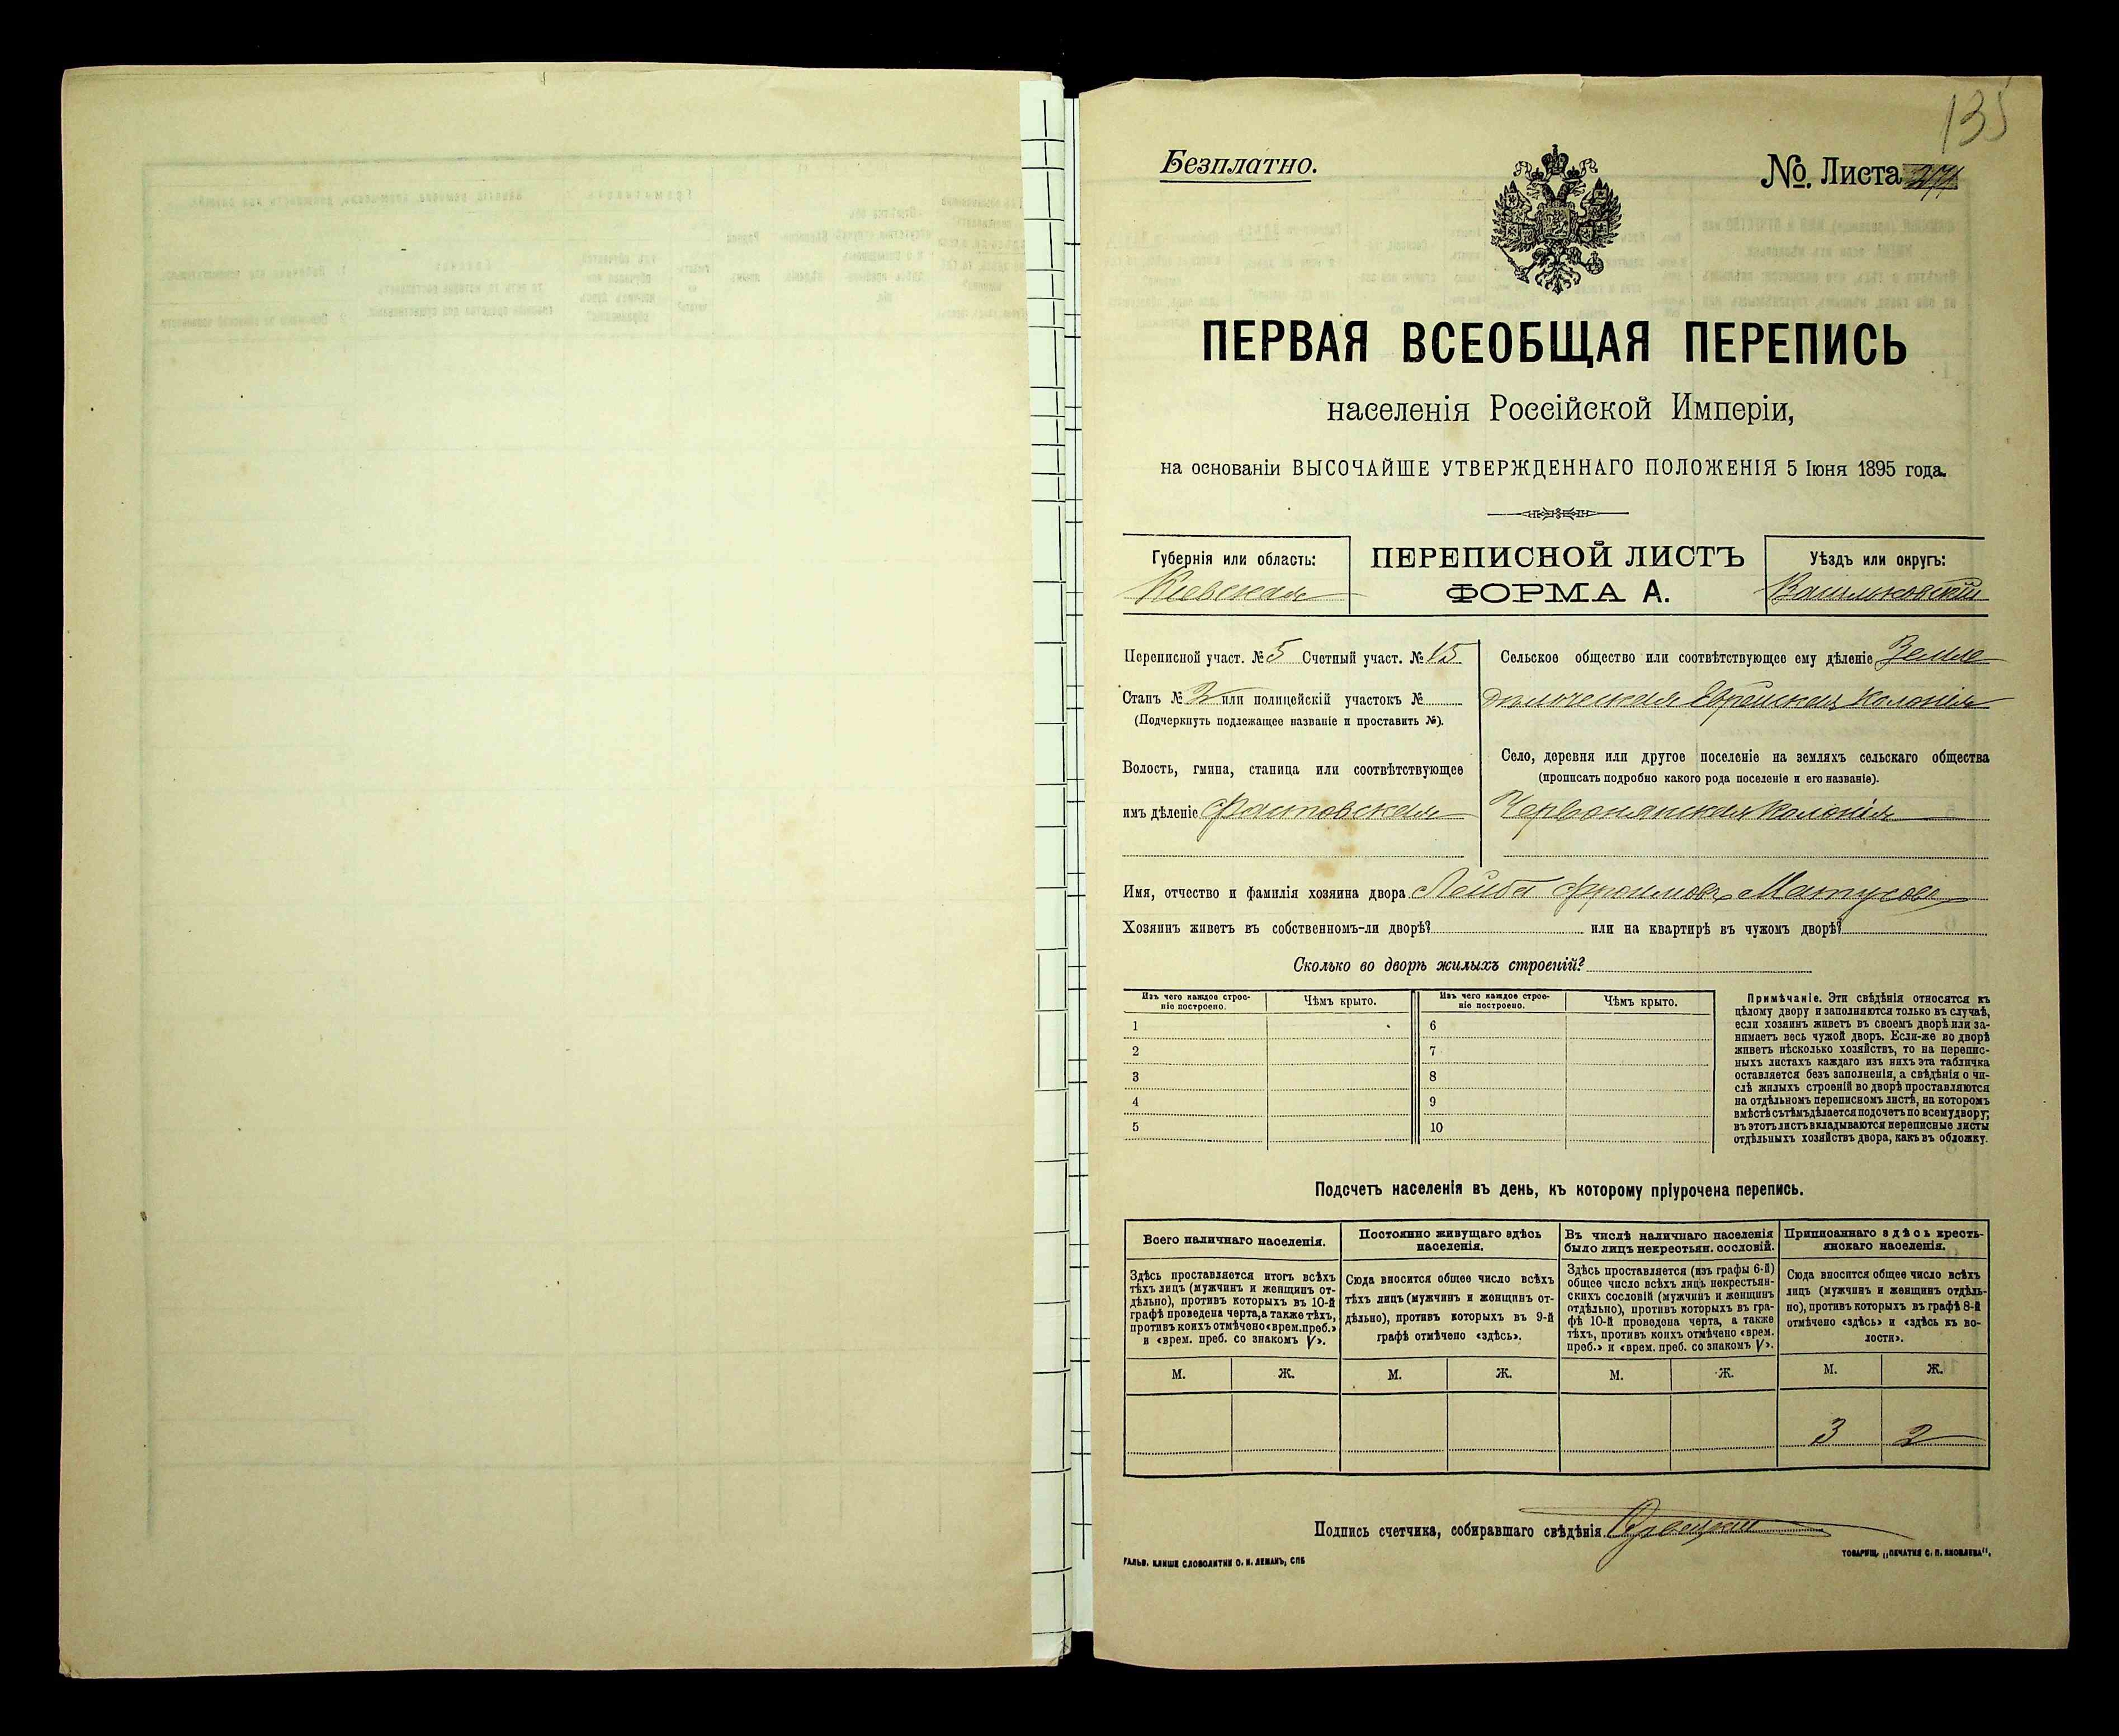 135
Безплатно.
№ Листа
ПЕРВАЯ ВСЕОБЩАЯ ПЕРЕПИСЬ
населенія Россійской Имперіи,
на основаніи ВЫСОЧАЙШЕ УТВЕРЖДЕННАГО ПОЛОЖЕНІЯ 5 Іюня 1895 года.
Губернія или область:
Кіевская
ПЕРЕПИСНОЙ ЛИСТЪ
ФОРМА А.
Уѣздъ или округъ:
Васильковскій
Переписной участ. № 5 Счетный участ. № 15
Станъ № 2 или полицейскій участокъ №
(Подчеркнуть подлежащее названіе и проставить №).
Волость, гмина, станица или соотвѣтствующее
имъ дѣленіе Фастовская
Сельское общество или соотвѣтствующее ему дѣленіе Земле
дѣльческая Еврейская колонія
Село, деревня или другое поселеніе на земляхъ сельскаго общества
(прописать подробно какого рода поселеніе и его названіе).
Червонянская колонія
Имя, отчество и фамилія хозяина двора Лейба Фроимовъ Матусовъ
Хозяинъ живетъ въ собственномъ-ли дворѣ? или на квартирѣ въ чужомъ дворѣ?
Сколько во дворѣ жилыхъ строеній?
Изъ чего каждое строе-
ніе построено.
Чѣмъ крыто.
Изъ чего каждое строе-
ніе построено.
Чѣмъ крыто.
1 6
2 7
3 8
4 9
5 10
Примѣчаніе. Эти свѣдѣнія относятся къ
цѣлому двору и заполняются только въ случаѣ,
если хозяинъ живетъ въ своемъ дворѣ или за-
нимаетъ весь чужой дворъ. Если-же во дворѣ
живетъ нѣсколько хозяйствъ, то на перепис-
ныхъ листахъ каждаго изъ нихъ эта табличка
оставляется безъ заполненія, а свѣдѣнія о чи-
слѣ жилыхъ строеній во дворѣ проставляются
на отдѣльномъ переписномъ листѣ, на которомъ
вмѣстѣ съ тѣмъ дѣлается подсчетъ по всему двору;
въ этотъ листъ вкладываются переписные листы
отдѣльныхъ хозяйствъ двора, какъ въ обложку.
Подсчетъ населенія въ день, къ которому пріурочена перепись.
Всего наличнаго населенія.
Здѣсь проставляется итогъ всѣхъ
тѣхъ лицъ (мужчинъ и женщинъ от-
дѣльно), противъ которыхъ въ 10-й
графѣ проведена черта, а также тѣхъ,
противъ коихъ отмѣчено «врем. преб.»
и «врем. преб. со знакомъ V».
Постоянно живущаго здѣсь
населенія.
Сюда вносится общее число всѣхъ
тѣхъ лицъ (мужчинъ и женщинъ от-
дѣльно), противъ которыхъ въ 9-й
графѣ отмѣчено «здѣсь».
Въ числѣ наличнаго населенія
было лицъ некрестьян. сословій.
Здѣсь проставляется (изъ графы 6-й)
общее число всѣхъ лицъ некрестьян-
скихъ сословій (мужчинъ и женщинъ
отдѣльно), противъ которыхъ въ гра-
фѣ 10-й проведена черта, а также
тѣхъ, противъ коихъ отмѣчено «врем.
преб.» и «врем. преб. со знакомъ V».
Приписаннаго здѣсь кресть-
янскаго населенія.
Сюда вносится общее число всѣхъ
лицъ (мужчинъ и женщинъ отдѣль-
но), противъ которыхъ въ графѣ 8-й
отмѣчено «здѣсь» и «здѣсь къ во-
лости».
М. Ж. М. Ж. М. Ж. М. Ж.
3 2
Подпись счетчика, собиравшаго свѣдѣнія
ГАЛЬВ. КЛИШЕ СЛОВОЛИТНИ О. И. ЛЕМАНЪ, СПБ
ТОВАРИЩ. „ПЕЧАТНЯ С. П. ЯКОВЛЕВА".